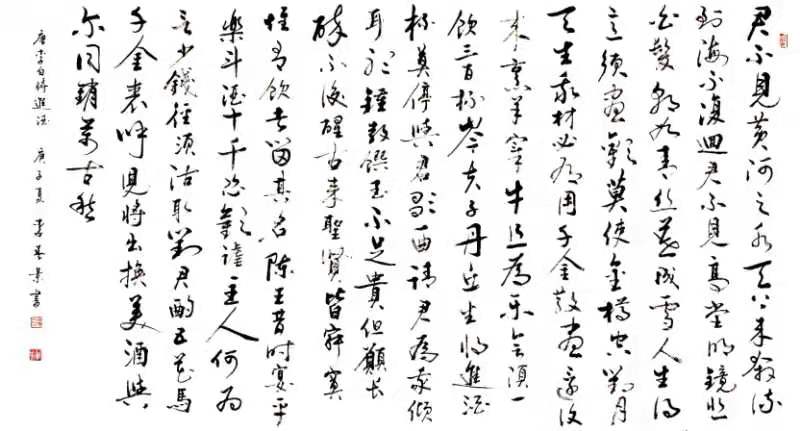 君不見黄河之水天上来奔流
到海不復迴君不見高堂明鏡悲
白髮朝如青丝暮成雪人生得
意須盡歡莫使金樽空對月
天生我材必有用千金散盡還復
来烹羊宰牛且為樂會須一
飲三百杯岑夫子丹丘生将進酒
杯莫停與君歌一曲請君為我傾
耳聽鐘鼓饌玉不足貴但願長
醉不復醒古来聖賢皆寂寞
惟有飲者留其名陳王昔時宴平
樂斗酒十千恣歡謔主人何為
言少錢徑須沽取對君酌五花馬
千金裘呼兒将出換美酒與
尔同銷萬古愁
唐李白将進酒 庚子夏 書